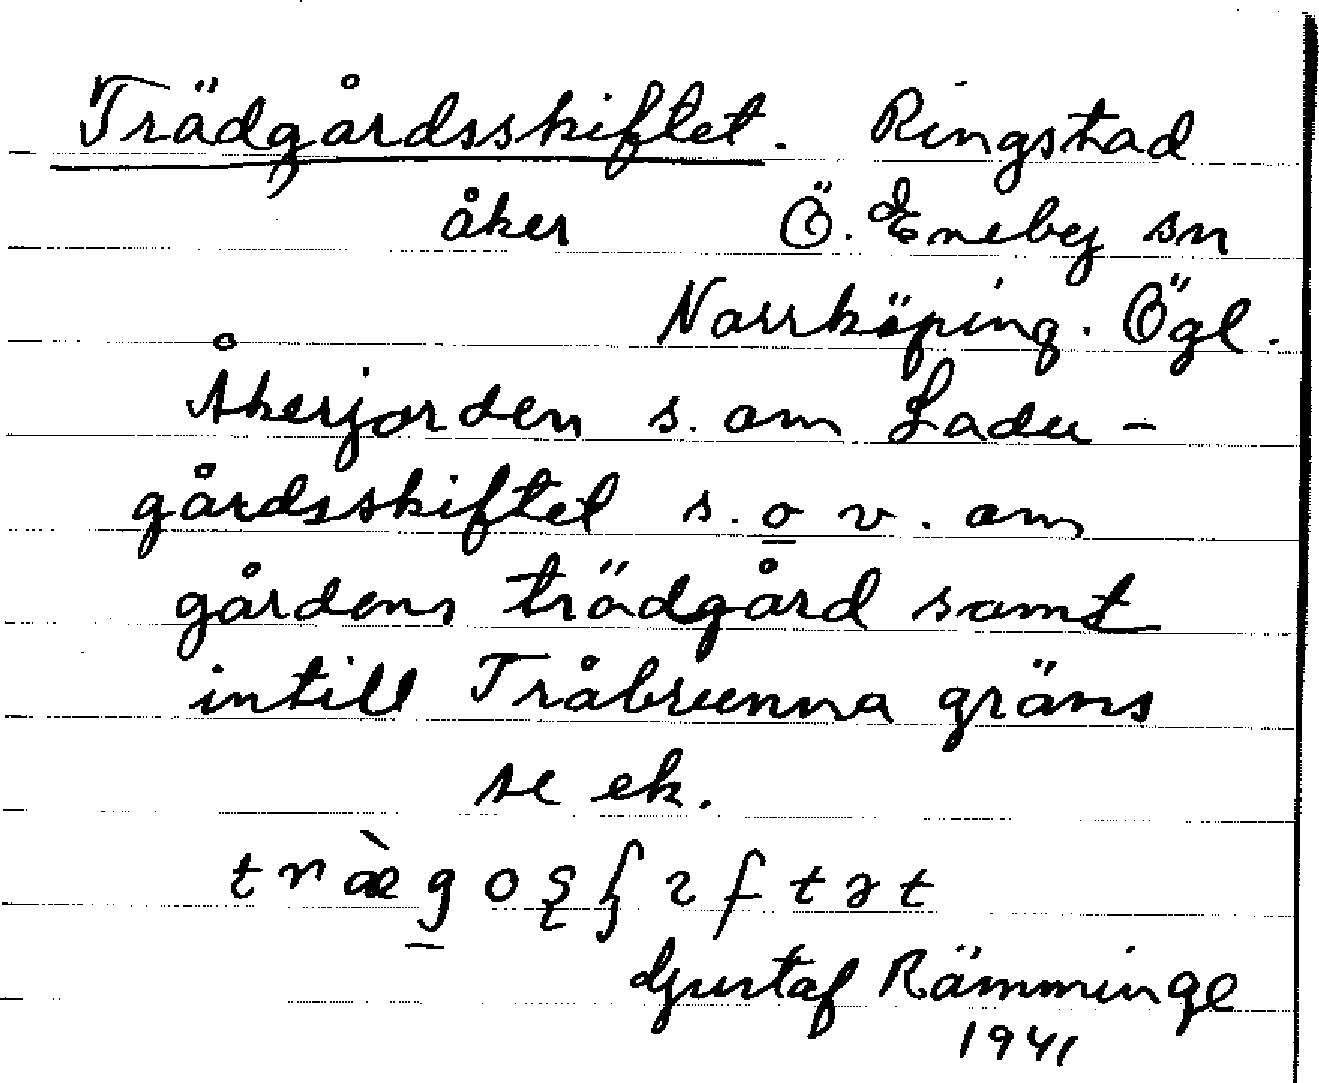 Trädgårdsskiftet. Ringstad
åker Ö. Eneby sn
Norrköping. Ögl.
Åkerjorden s. om Ladu-
gårdsskiftet s. o v. om
gårdens trädgård samt
intill Tråbrunna gräns
se ek.
Gustaf Rämminge
1941